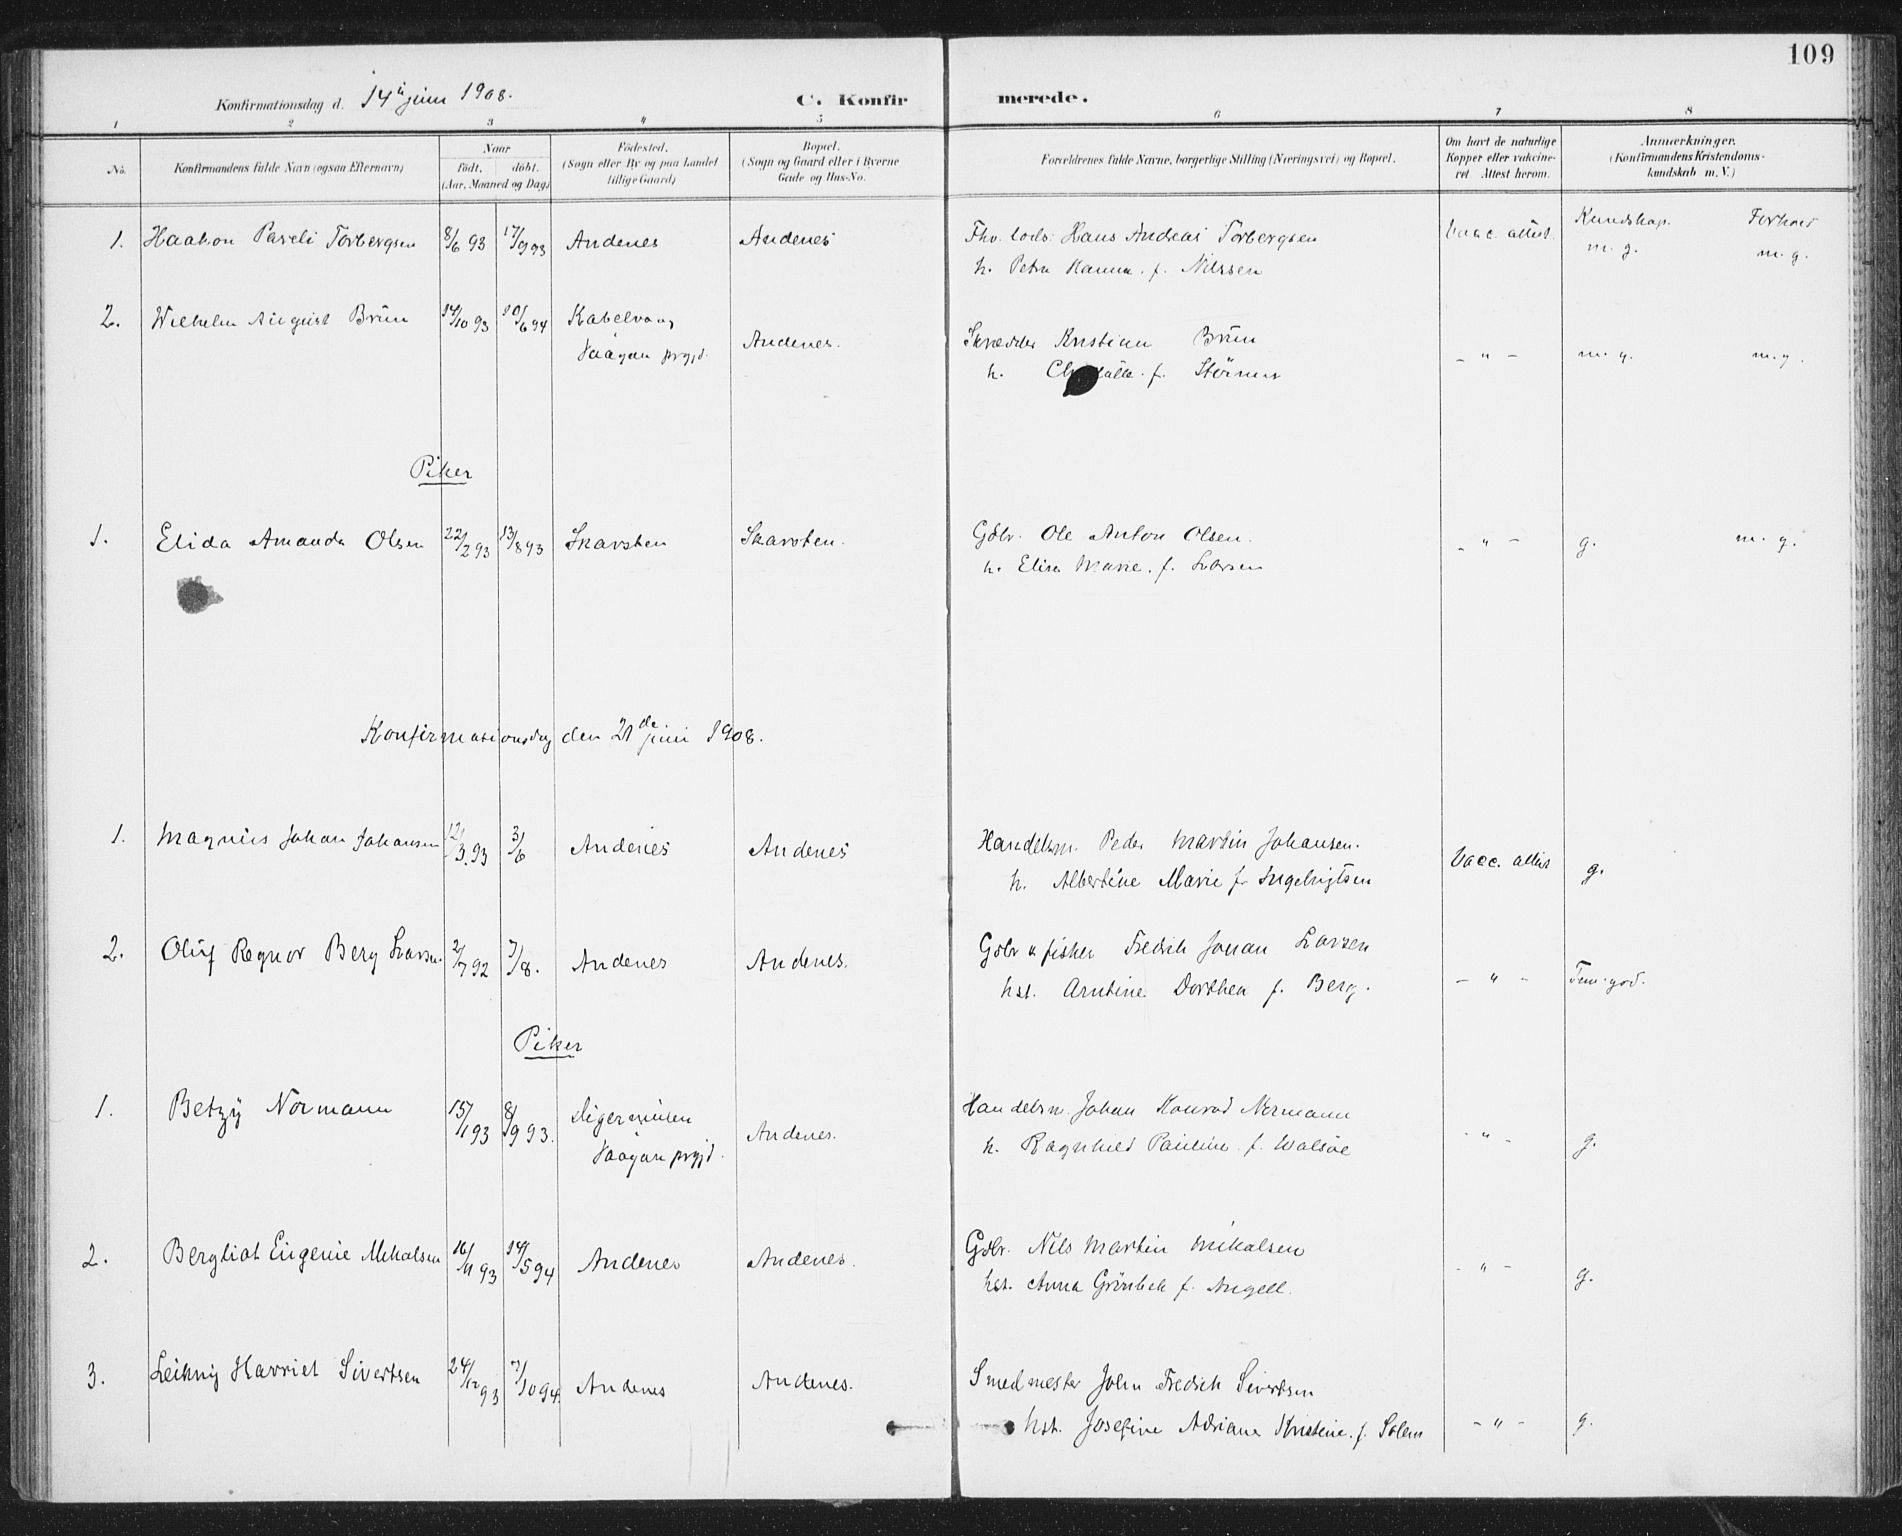 109
Konfirmationsdag d. 14de juni 1908.
C. Konfirmerede.
1 2 3 4 5 6 7 8
No.
Konfirmandens fulde Navn (ogsaa Efternavn)
Naar
födt. döbt.
(Aar, Maaned og Dag)
Födested.
(Sogn eller By og paa Landet
tillige Gaard)
Bopæl.
(Sogn og Gaard eller i Byerne
Gade og Hus-No.
Forældrenes fulde Navne, borgerlige Stilling (Næringsvei) og Bopæl.
Om havt de naturlige
Kopper eller vakcine-
ret Attest herom.
Anmærkninger.
(Konfirmandens Kristendoms-
kundskab m. V.)
Kundskap. Forhold
1. Haakon Pareli Torbergsen 8/6 93 17/9 93 Andenes Andenes Fhv. lods Hans Andreas Torbergsen Vacc. attest. m. g. m. g.
h. Petra Hanna f. Nilssen
2. Wilhelm August Brün 14/10 93 10/6 94 Kabelvaag
Vaagan prgjd. Andenes. Skrædder Kristian Brün - " - m. g. m. g.
h. f. Störmer
Piker
1. Elida Amanda Olsen 22/2 93 13/8 93 Skarsten Skarsten. Gdbr. Ole Anton Olsen. - " - g. m. g.
h. Elisa Marie. f. Larsen
Konfirmationsdag den 21de juni 1908.
1. Magnus Johan Johansen 12/3 93 3/6 Andenes Andenes Handelsm. Peder Martin Johansen. Vacc. attest g.
h. Albertine Marie f. Ingebrigtsen
2. Oluf Regnor Berg Larsen. 2/7 92 7/8. Andenes Andenes. Gdbr & fisker Fredrik Johan Larsen - " - Tem. god.
hst. Arntine Dorthea f. Berg.
Piker
1. Betzy Normann 15/1 93 8/9 93. Digermulen
Vaagan prgjd. Andenes. Handelsm. Johan Konrad Normann - " - g.
h. Ragnhild Pauline f. Walsöe
2. Bergliot Eugenie Mikalsen 16/11 93 14/5 94 Andenes Andenes. Gdbr. Nils Martin Mikalsen - " - g.
hst. Anna Grönbek f. Angell.
3. Leikny Harriet Sivertsen 24/12 93 7/10 94. Andenes Andenes. Smedmester John Fredrik Sivertsen
hst. Josefine Adriane Kristine. f. Solem - " - g.